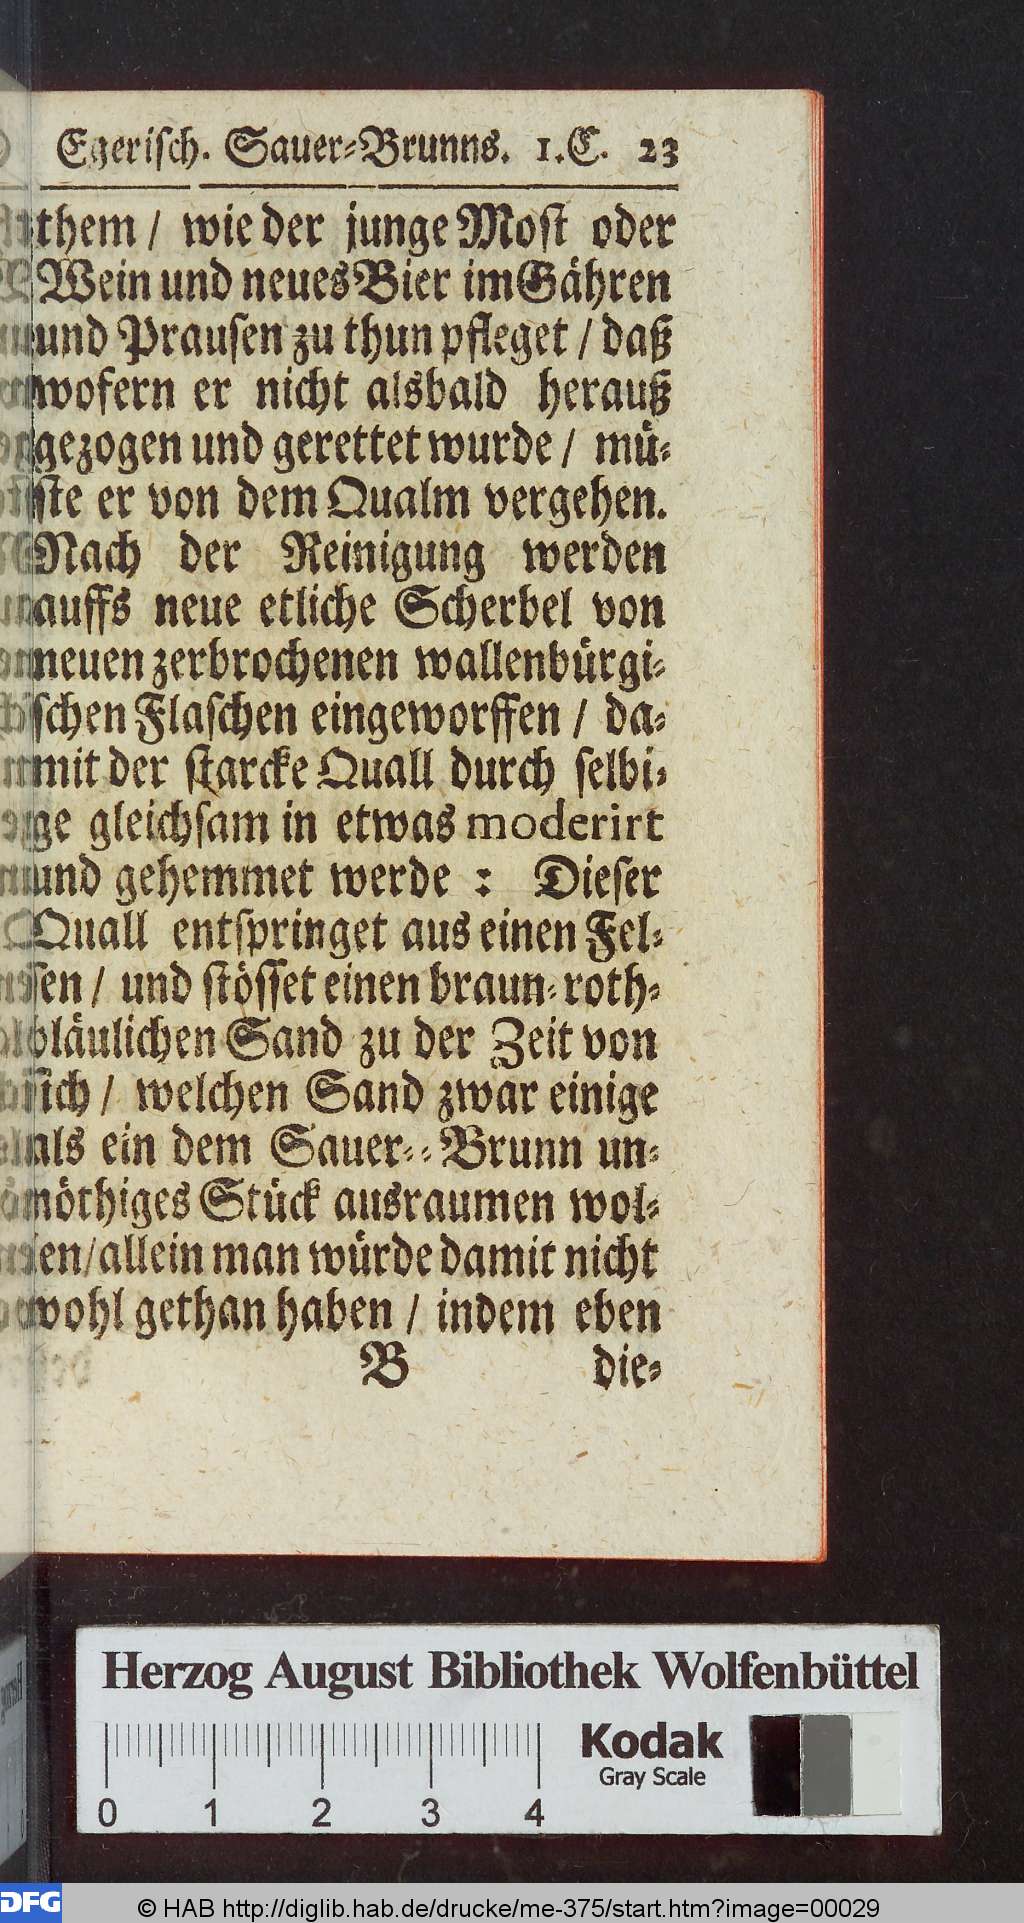 Egerisch. Sauer-Brunns. 1.C. 23
Athem / wie der junge Most oder
Wein und neues Bier im Gähren
und Prausen zu thun pfleget / daß
wofern er nicht alsbald herauß
gezogen und gerettet wurde / mü-
ste er von dem Qualm vergehen.
Nach der Reinigung werden
auffs neue etliche Scherbel von
neuen zerbrochenen wallenbürgi-
schen Flaschen eingeworffen / da-
mit der starcke Quall durch selbi-
ge gleichsam in etwas moderirt
und gehemmet werde : Dieser
Quall entspringet aus einen Fel-
sen / und stösset einen braun-roth-
bläulichen Sand zu der Zeit von
sich / welchen Sand zwar einige
als ein dem Sauer-Brunn un-
nöthiges Stück ausraumen wol-
len/allein man würde damit nicht
wohl gethan haben / indem eben
B die-
Herzog August Bibliothek Wolfenbüttel
Kodak
Gray Scale
0 1 2 3 4
DFG © HAB http://diglib.hab.de/drucke/me-375/start.htm?image=00029